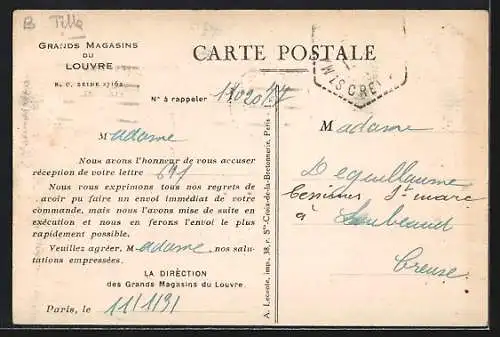 B Tilla
GRANDS MAGASINS
DU
LOUVRE
R. C. SEINE 27162
CARTE POSTALE
N° à rappeler
Madame
Nous avons l'honneur de vous accuser
réception de votre lettre 691
Nous vous exprimons tous nos regrets de
n'avoir pu faire un envoi immédiat de votre
commande, mais nous l'avons mise de suite en
exécution et nous en ferons l'envoi le plus
rapidement possible.
Veuillez agréer, Madame, nos salu-
tations empressées.
LA DIRECTION
des Grands Magasins du Louvre.
Paris, le 11/1/31
A. Lecomte, imp., 38, r. Ste-Croix-de-la-Bretonnerie, Paris
Madame
Deguillaume
St marc
à Loubeaud
Creuse